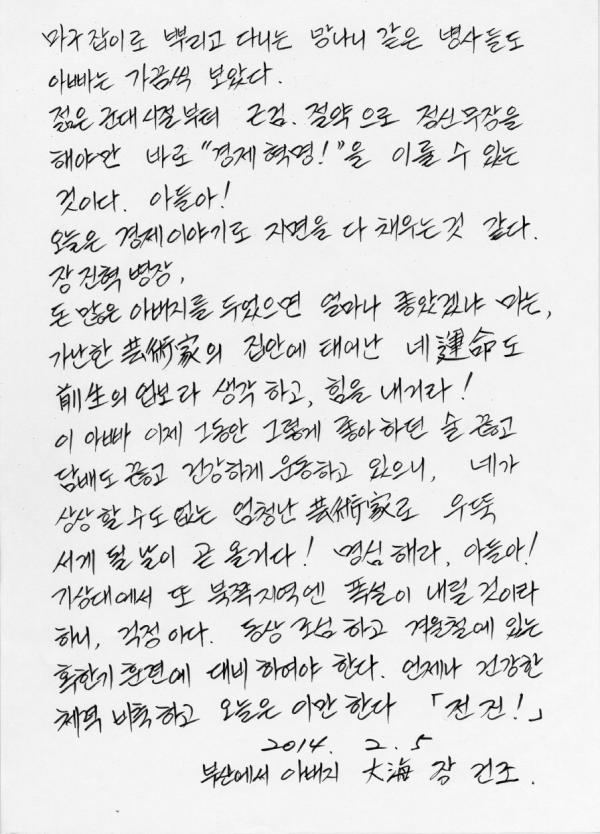 마구잡이로 뿌리고 다니는 망나니 같은 병사들도
아빠는 가끔씩 보았다.
젊은 군대시절부터 근검.절약으로 정신무장을
해야만 바로 "경제혁명!"을 이룰 수 있는
것이다. 아들아!
오늘은 경제이야기로 지면을 다 채우는것 같다.
장진혁병장,
돈 많은 아버지를 두었으면 얼마나 좋았겠냐 마는,
가난한 芸術家의 집안에 태어난 네 運命도
前生의 업보라 생각하고, 힘을 내거라!
이 아빠 이제 그동안 그렇게 좋아하던 술 끊고
담배도 끊고 건강하게 운동하고 있으니, 네가
상상할 수도 없는 엄청난 芸術家로 우뚝
서게 될 날이 곧 올거다! 명심해라, 아들아!
기상대에서 또 북쪽지역엔 폭설이 내릴 것이라
하니, 걱정이다. 동상 조심하고 겨울철에 있는
혹한기훈련에 대비하여야 한다. 언제나 건강한
체력 비축하고 오늘은 이만 한다 「전진!」
2014. 2. 5
부산에서 아버지 大海 장 건조.